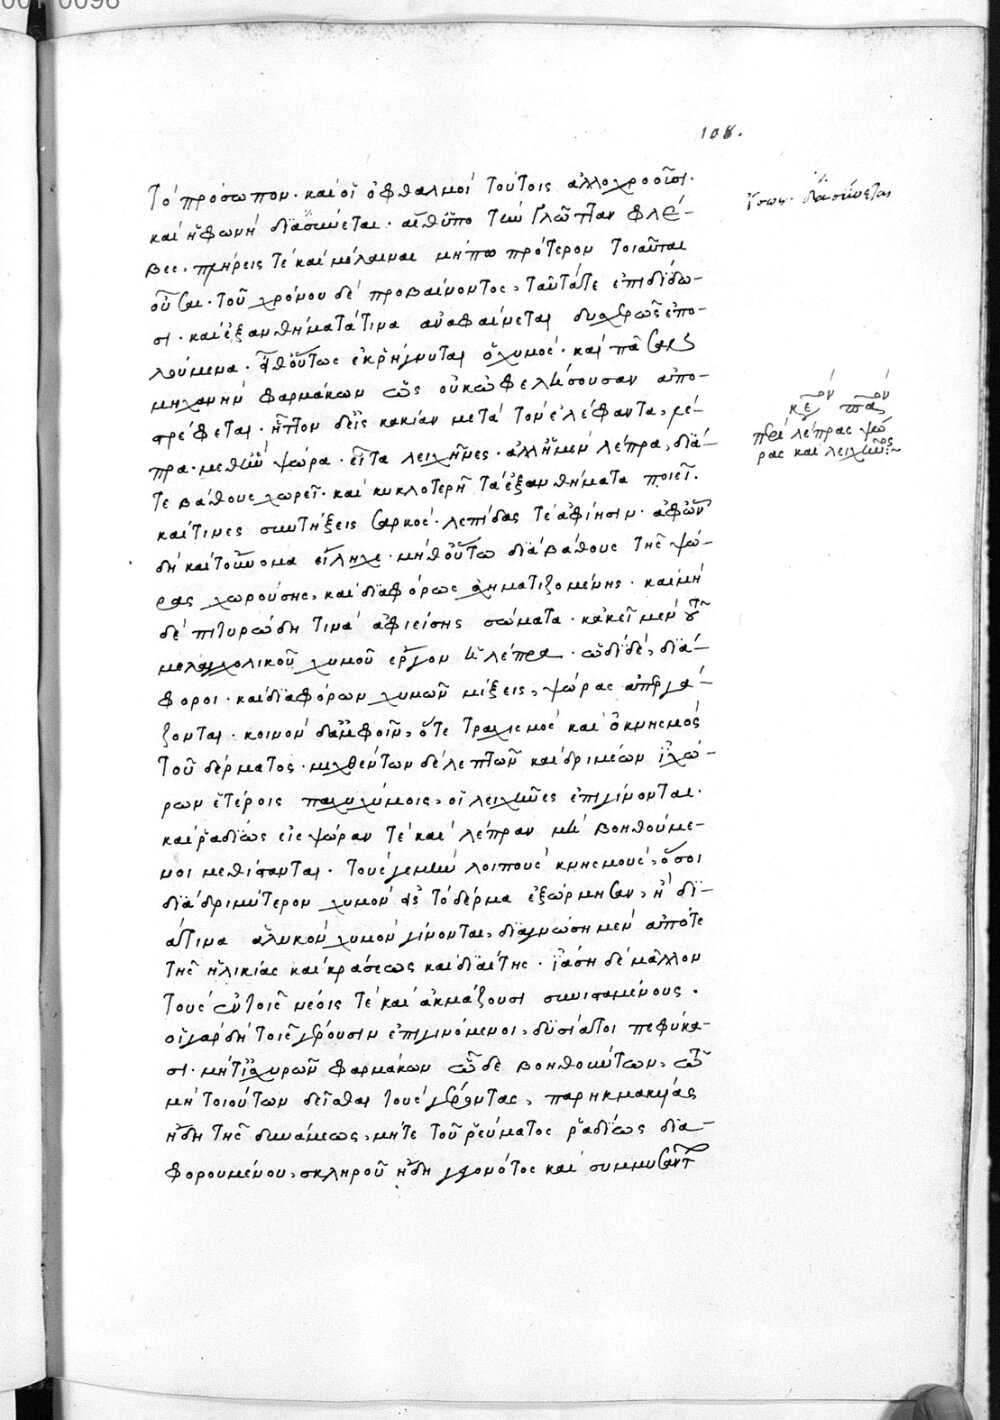 108.
τὸ πρόσωπον· καὶ οἱ ὀφθαλμοὶ τούτοις ἀλλοχροοῦσι·
ἴσως· δασύνεται
καὶ ἡ φωνὴ διασύνεται· αἵθ' ὑπὸ τὴν γλῶτταν φλέ-
βες· πλήρεις τὲ καὶ μέλαιναι μήπω πρότερον τοιαῦται
οὖσαι· τοῦ χρόνου δὲ προβαίνοντος, ταῦτά τε ἐπιδίδω-
σι· καὶ ἐξανθήματά τινα ἀναφαίνεται δυσχερῶς ἐπο-
λούμενα· εἶθ' οὕτως ἐκρήγνυται ὁ χυμός· καὶ πᾶσαν
μηχανὴν φαρμάκων ὡς οὐκ ὠφελήσουσαν ἀπο-
στρέφεται· ἧττον δ' εἰς κακίαν μετὰ τὸν ἐλέφαντα, λέ-
πρα· μεθ' ἣν ψώρα· εἶτα λειχῆνες· ἀλλ' ἡ μὲν λέπρα, διά-
περὶ λέπρας ψώ
ρας καὶ λειχῆνος
τε βάθους χωρεῖ· καὶ κυκλοτερῆ τὰ ἐξανθήματα ποιεῖ·
καί τινες συντήξεις σαρκός· λεπίδας τὲ ἀφίησιν· ἀφ' ὧν
δὴ καὶ τοὔνομα εἴληχε· μήθ' οὕτω διὰ βάθους τῆς ψώ-
ρας χωρούσης, καὶ διαφόρως σχηματιζομένης· καὶ μὴ
δὲ πιτυρώδη τινὰ ἀφιείσης σώματα· κἀκεῖ μὲν
μελαγχολικοῦ χυμοῦ ἔργον ἡ λέπρα· ὧδὶ δὲ, διά-
φοροι· καὶ διαφόρων χυμῶν μίξεις, ψώρας ἀπεργά-
ζονται· κοινὸν δ' ἀμφοῖν, ὅτε τραχυσμὸς καὶ ὁ κνησμὸς
τοῦ δέρματος· μιχθέντων δὲ λεπτῶν καὶ δριμέων ἰχώ-
ρων ἑτέροις παχυχύμοις, οἱ λειχῆνες ἐπιγίνονται·
καὶ ῥαδίως εἰς ψώραν τὲ καὶ λέπραν μὴ βοηθούμε-
νοι μεθίστανται· τοὺς γε μὴν λοιποὺς κνησμοὺς, ὅσοι
διὰ δριμύτερον χυμὸν εἰς τὸ δέρμα ἐξώρμησαν, ἢ δι-
ά τινα ἁλυκὸν χυμὸν γίνονται, διαγνώσῃ μὲν ἀπό τε
τῆς ἡλικίας καὶ κράσεως καὶ διαίτης· ἰάσῃ δὲ μᾶλλον
τοὺς ἐν τοῖς νέοις τὲ καὶ ἀκμάζουσι συνισταμένους·
οἱ γὰρ δὴ τοῖς γέρουσιν ἐπιγινόμενοι, δυσίατοι πεφύκα-
σι· μήτ' ἰσχυρῶν φαρμάκων ὧδε βοηθούντων,
μὴ τοιούτων δεῖσθαι τοὺς γέροντας, παρηκμακυίας
ἤδη τῆς δυνάμεως, μήτε τοῦ ῥεύματος ῥαδίως δια-
φορουμένου, σκληροῦ ἤδη γεγονότος καὶ